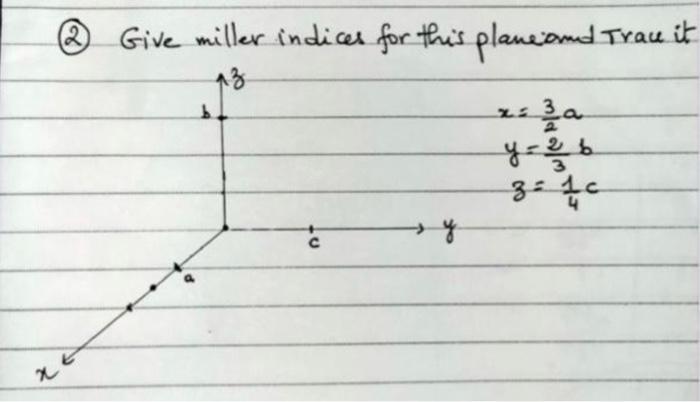 ② Give miller indices for this plane and Trace it
z
b
x = 3/2 a
y = 2/3 b
z = 1/4 c
y
c
a
x